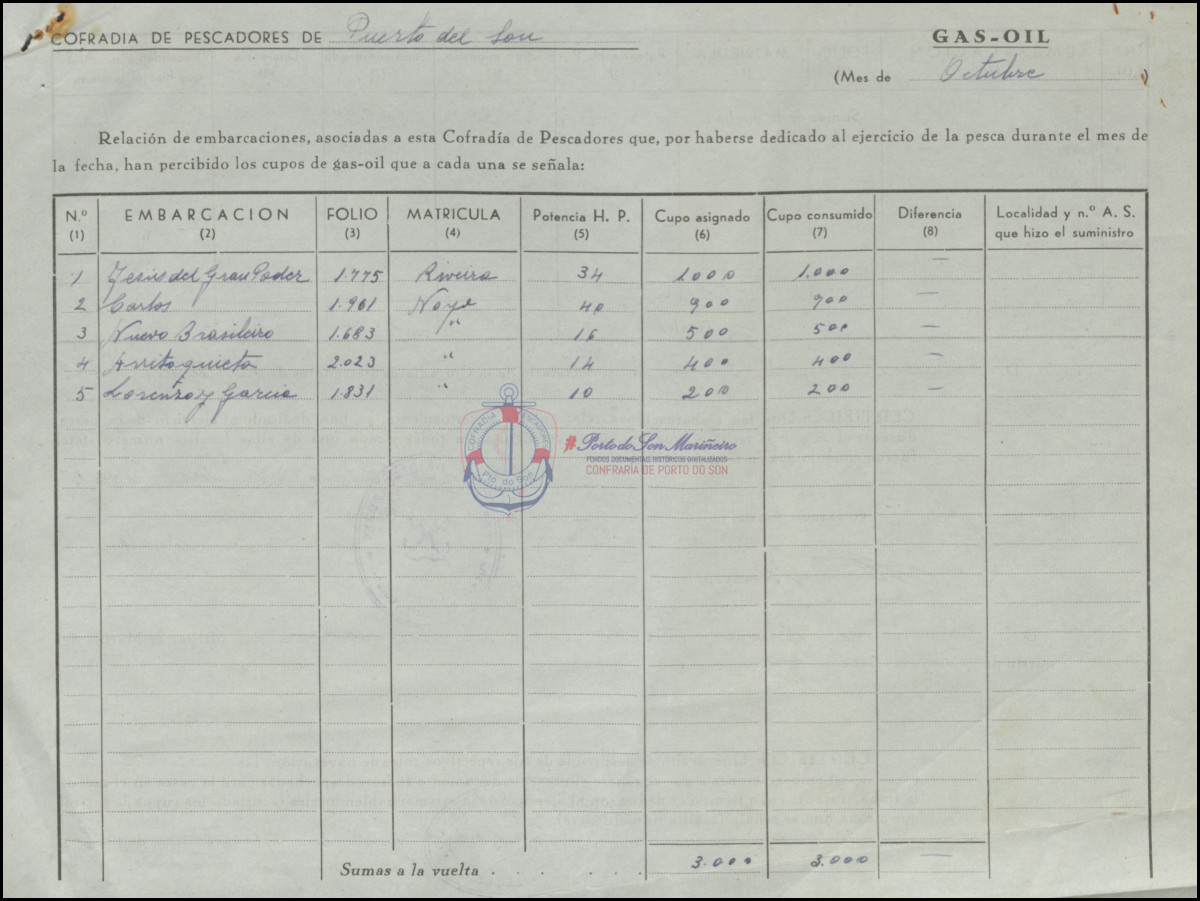 COFRADIA DE PESCADORES DE Puerto del Son
GAS-OIL
(Mes de Octubre)
Relación de embarcaciones, asociadas a esta Cofradía de Pescadores que, por haberse dedicado al ejercicio de la pesca durante el mes de
la fecha, han percibido los cupos de gas-oil que a cada una se señala:
N.º EMBARCACION FOLIO MATRICULA Potencia H. P. Cupo asignado Cupo consumido Diferencia Localidad y n.º A. S.
(1) (2) (3) (4) (5) (6) (7) (8) que hizo el suministro
1 Jesus del Gran Poder 1.775 Riveira 34 1000 1,000 —
2 Carlos 1.961 Noya 40 900 900 —
3 Nuevo Brasileiro 1.683 " 16 500 500 —
4 2.023 " 14 400 400 —
5 Lorenzo y Garcia 1.831 " 10 200 200 —
COFRADIA PESCADORES
Pto. do Son
#Porto do Son Mariñeiro
FONDOS DOCUMENTAIS HISTÓRICOS DIXITALIZADOS
CONFRARÍA DE PORTO DO SON
Sumas a la vuelta . . . . . 3.000 3.000 —